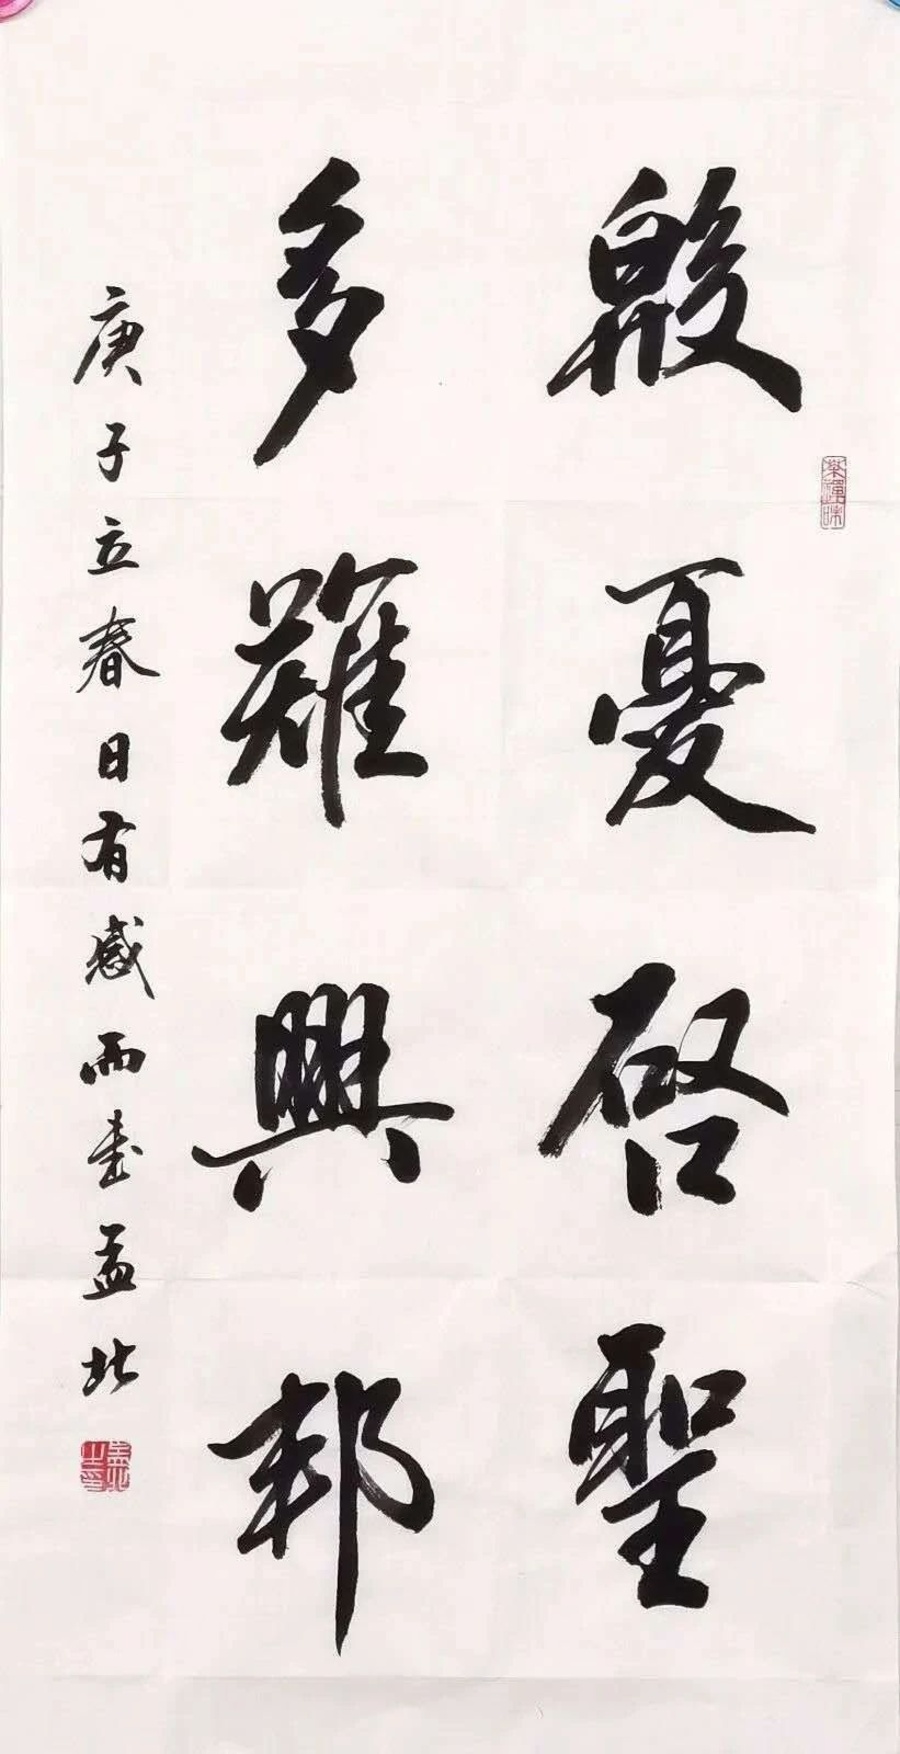 殷憂啓聖
多難興邦
庚子立春日有感而書孟北